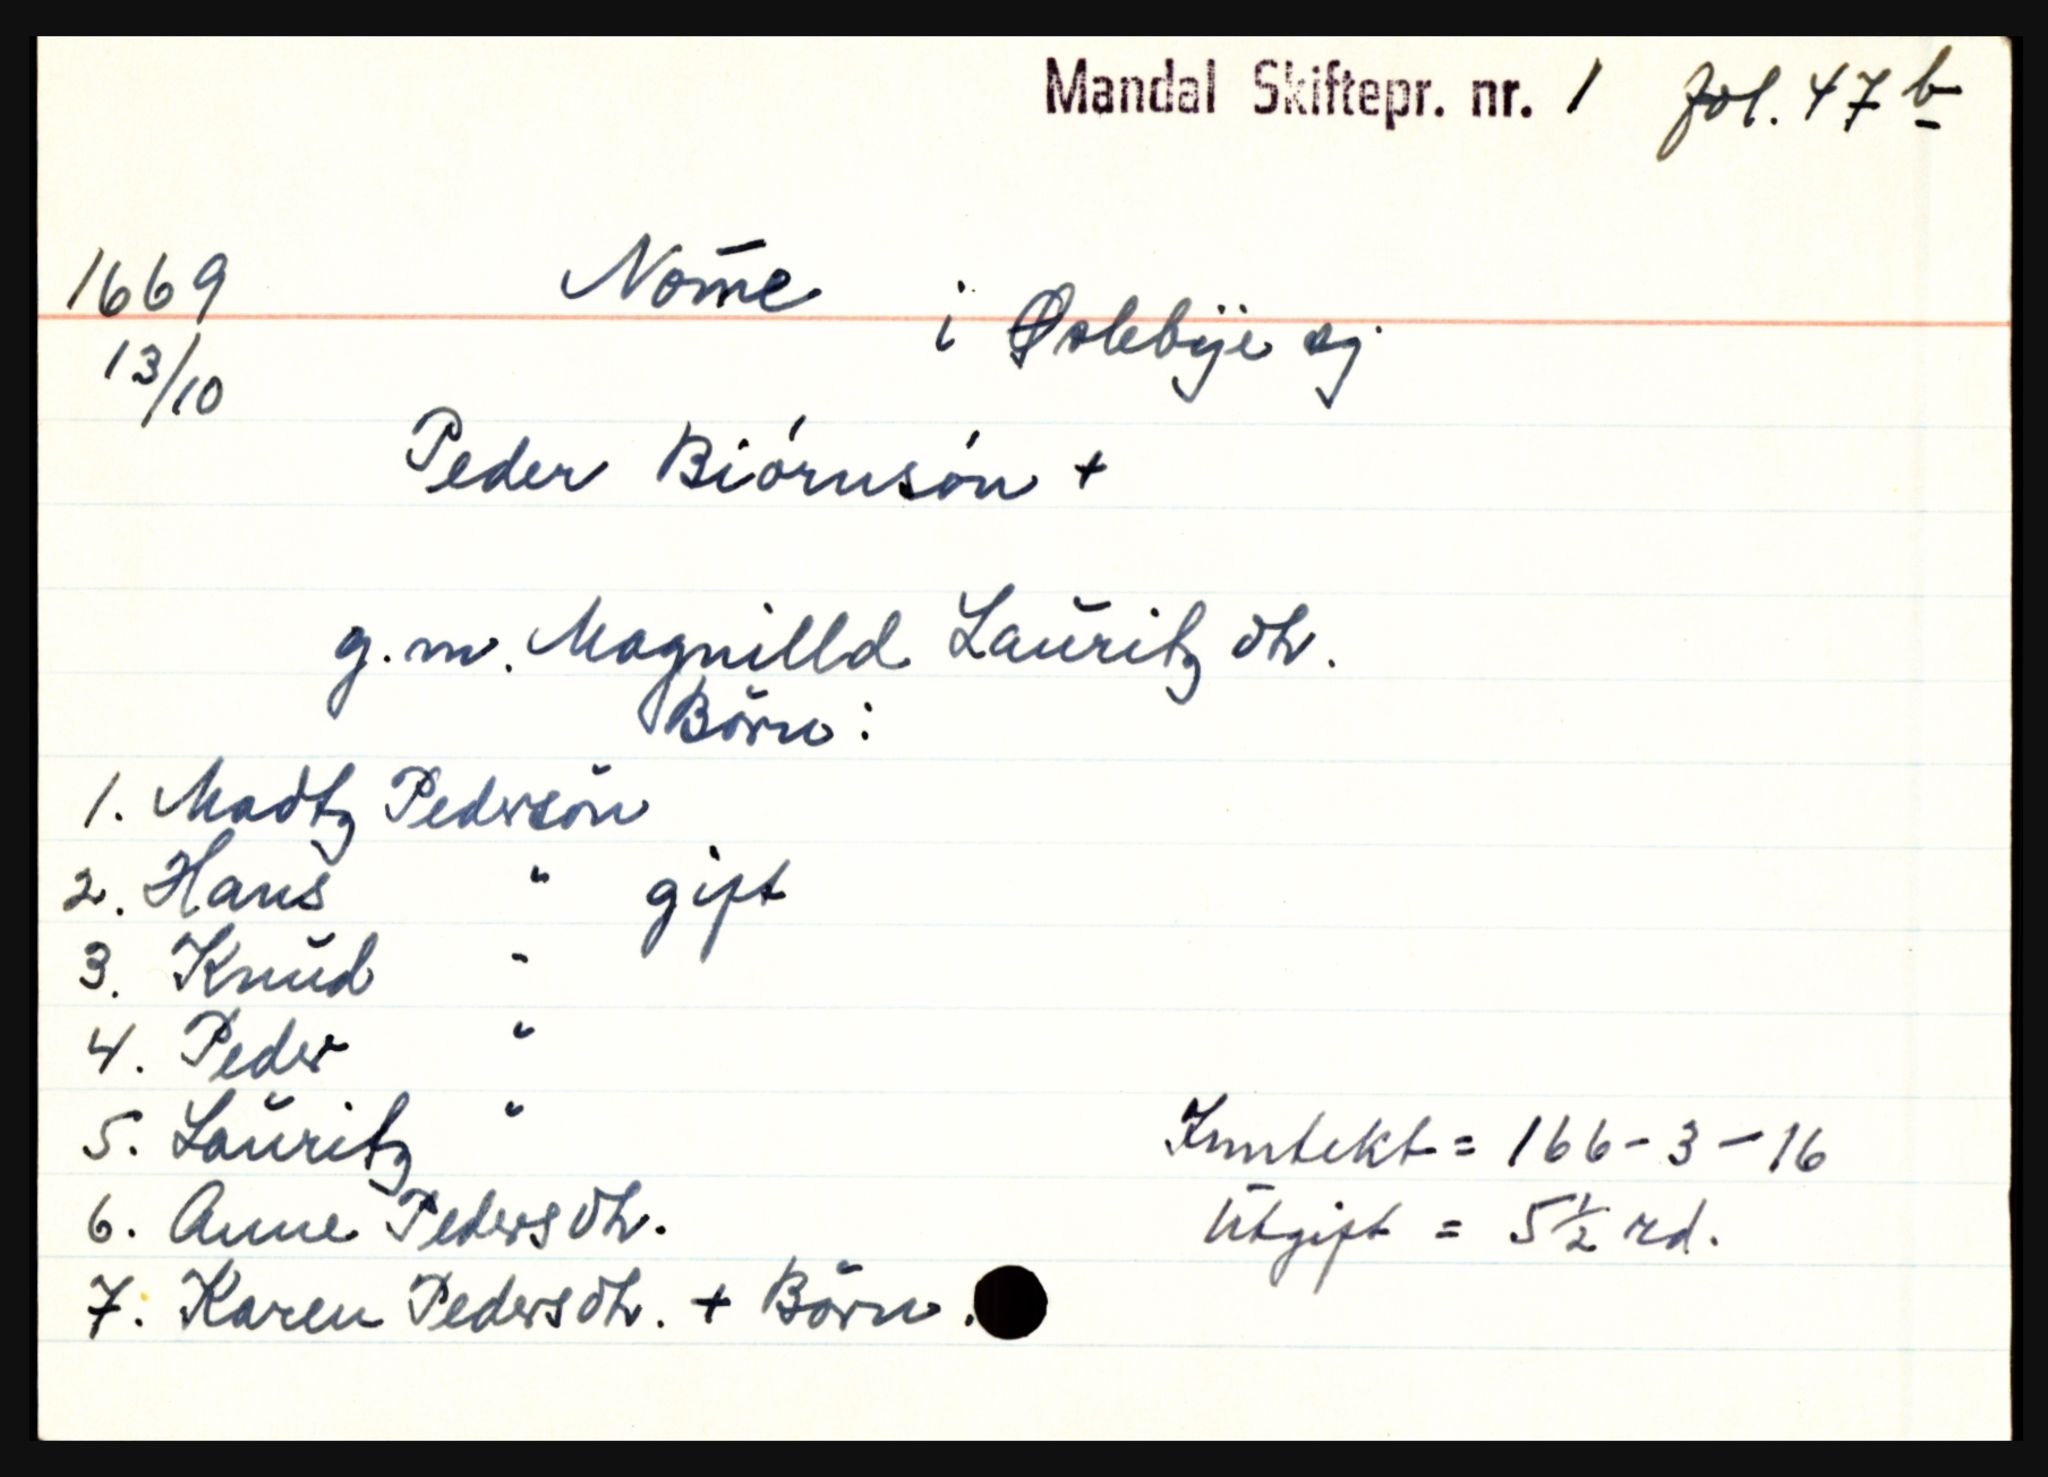 Mandal Skiftepr. nr. 1 fol. 47 b
1669 Nom̄e i Øslebÿe sg.
13/10
Peder Biórnsón +
g.m. Magnilld Laŭritz dtr.
Börn:
1. Madtz Pedersön
2. Hans " gift
3. Knŭd "
4. Peder "
5. Laŭritz "
6. Anne Pedersdtr.
7. Karen Pedersdtr. + Börn.
Inntekt = 166 - 3 - 16
Utgift = 5 1/2 rd.